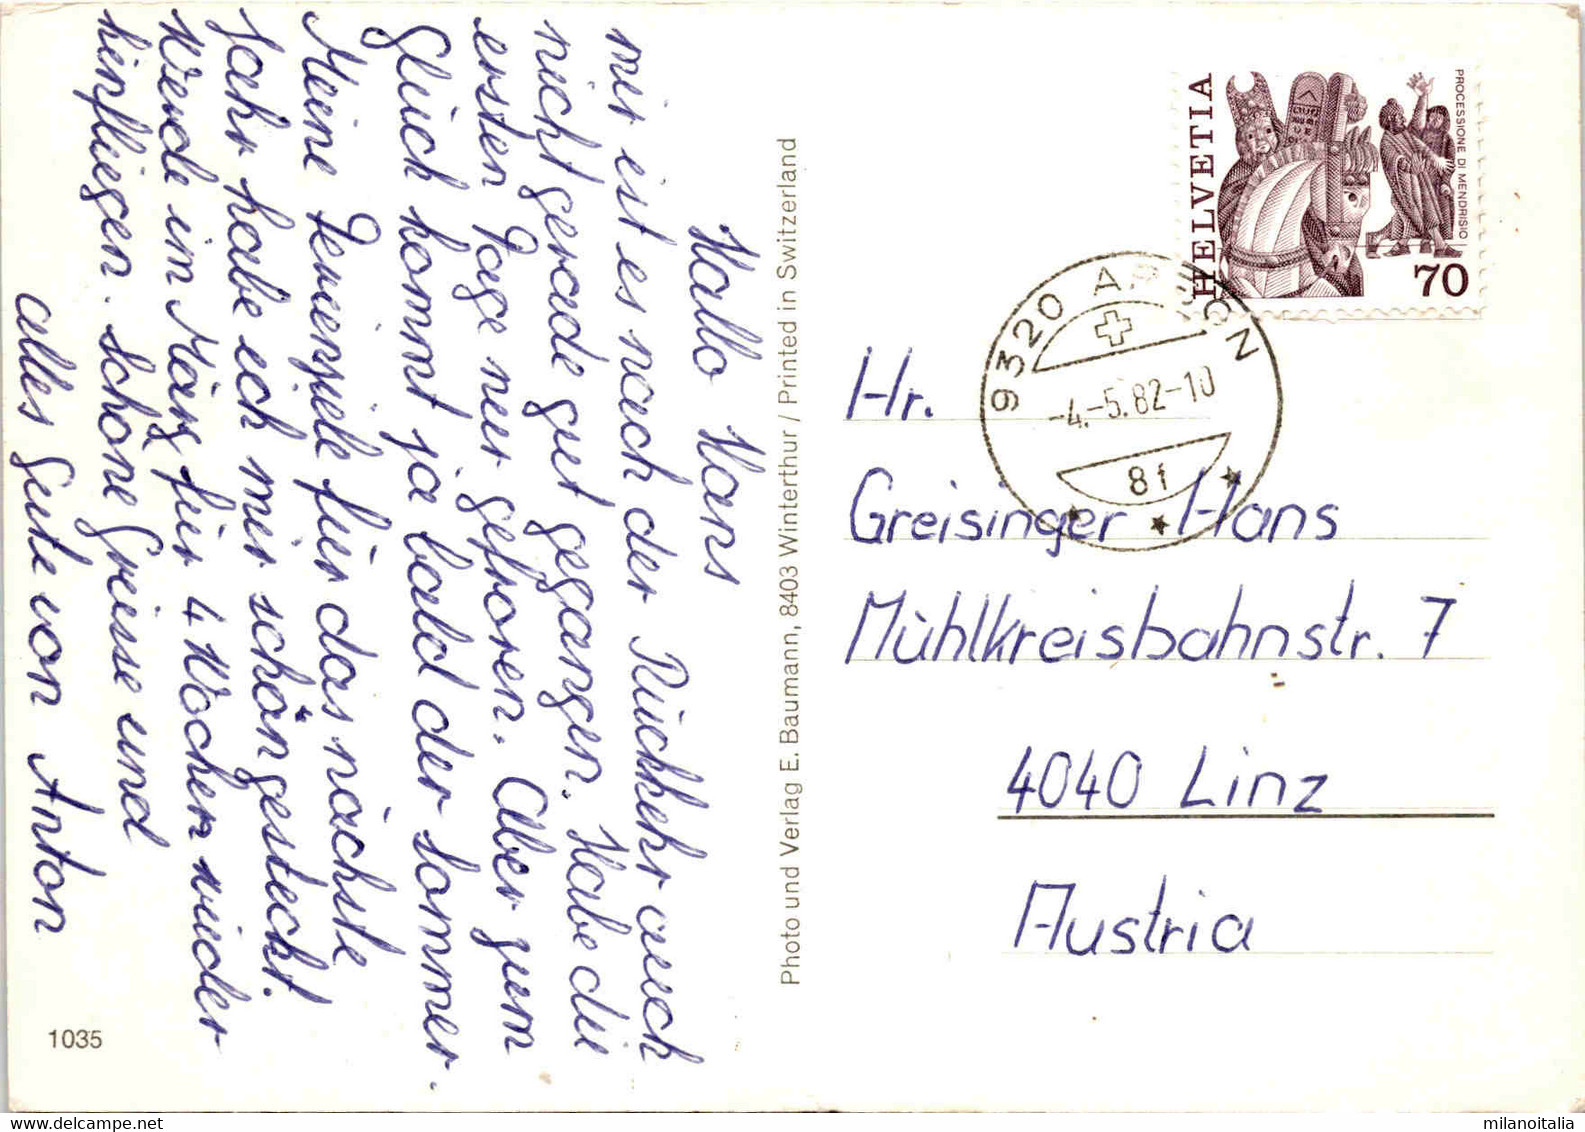 Hallo Hans
mir ist es nach der Rückkehr auch
nicht gerade gut gegangen. Habe die
ersten Tage nur gefroren. Aber zum
Glück kommt ja bald der Sommer.
Meine Ferienziele für das nächste
Jahr habe ich mir schön gesteckt.
Werde im März für 4 Wochen wieder
hinfliegen. Schöne Grüsse und
alles Gute von Anton
1035
Photo und Verlag E. Baumann, 8403 Winterthur / Printed in Switzerland
HELVETIA
PROCESSIONE DI MENDRISIO
70
9320 ARBON
-4.-5.82-10
Hr.
Greisinger Hans
Mühlkreisbahnstr. 7
4040 Linz
Austria
milanoitalia
www.delcampe.net